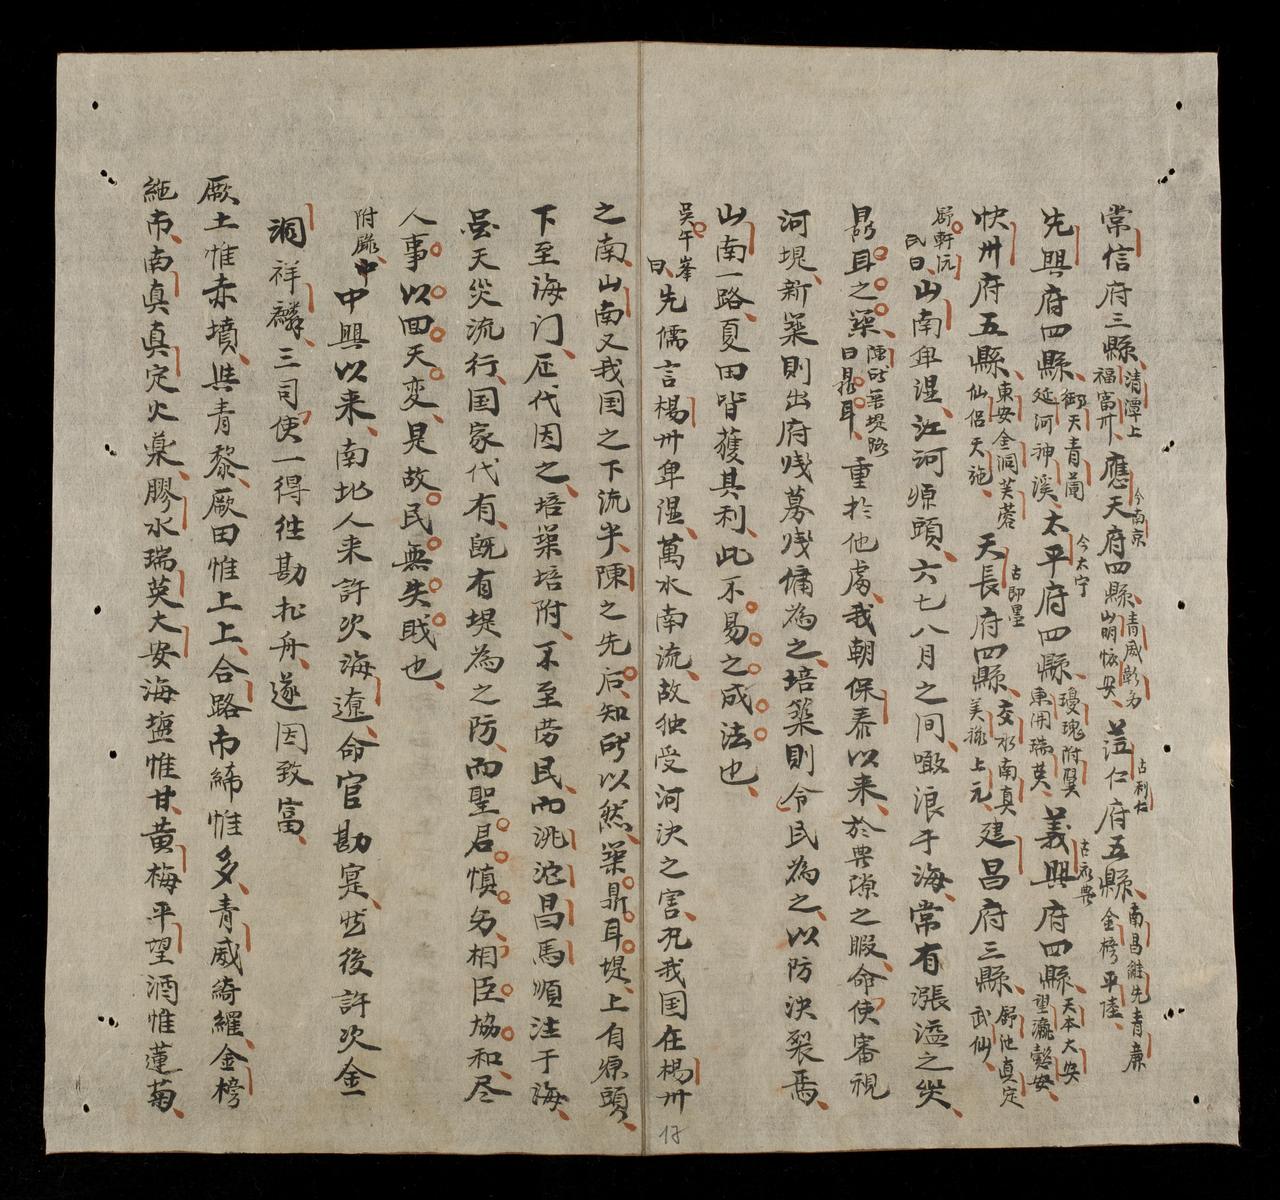 常信府三縣清潭上福富川應天府四縣青威彰為山明懷安蒞仁府五縣南昌維先青廉金榜平陸
先興府四縣御天青蘭延河神溪太平府四縣瓊瑰附翼東関瑞英義興府四縣天本大安望瀛懿安
快州府五縣東安金洞芙蓉仙侣天施天長府四縣交水南真美祿上元建昌府三縣舒池真定武仙
舒軒阮氏曰山南卑湿江河源頭六七八月之间噉浪于海常有漲溢之災
鼎耳之築陳时築堤路曰鼎耳重於他處我朝保泰以来於典隙之暇命使審視
河堤新築則出府戋募戋傭為之培築則令民為之以防決裂焉
山南一路夏田皆獲其利此不易之成法也
吴午峯曰先儒言楊州卑湿萬水南流故独受河決之害況我国在楊州
之南山南又我国之下流乎陳之先后知所以然築鼎耳堤上自源頭
下至海门厯代因之培築培附不至劳民而洮沱昌馬順注于海
虽天災流行国家代有既有堤為之防而聖君慎为相臣協和尽
人事以回天变是故民無失戝也
附錄中中興以来南北人来許次海遼命官勘寔然後許次金
洞祥麟三司使一得往勘松舟遂因致富
厥土惟赤墳與青黎厥田惟上上合路布絺惟多青威綺羅金榜
絁布南真真定火藥膠水瑞英大安海塩惟甘黄梅平望酒惟蓮菊
今南京
古利仁
今太宁
古永典
古即墨
17